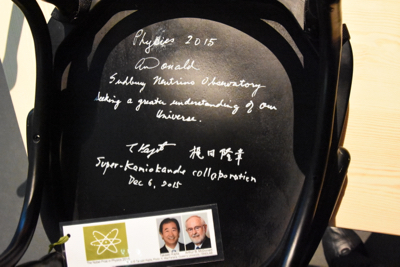 Physics 2015
Sudbury Neutrino Observatory
Seeking a greater understanding of our
Universe.
梶田隆章
Super-Kamiokande collaboration
Dec 6, 2015